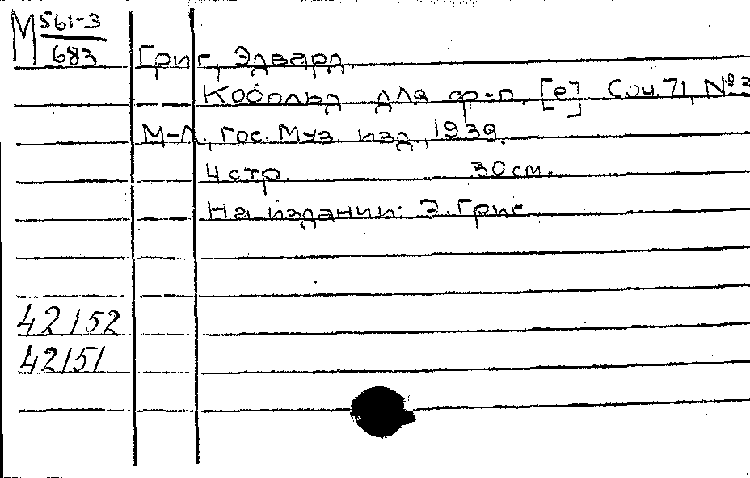 М 561-3
683
Григ, Эдвард.
Кобольд для ф-п. [e]. Соч. 71, № 3
М-Л., Гос. Муз. изд., 1939.
4 стр. 30 см.
На издании: Э. Григ
42152
42151